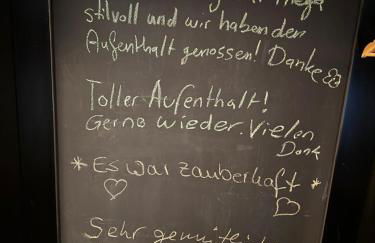 stilvoll und wir haben den
Aufenthalt genossen! Danke
Toller Aufenthalt!
Gerne wieder. Vielen
Dank
* Es war zauberhaft *
Sehr